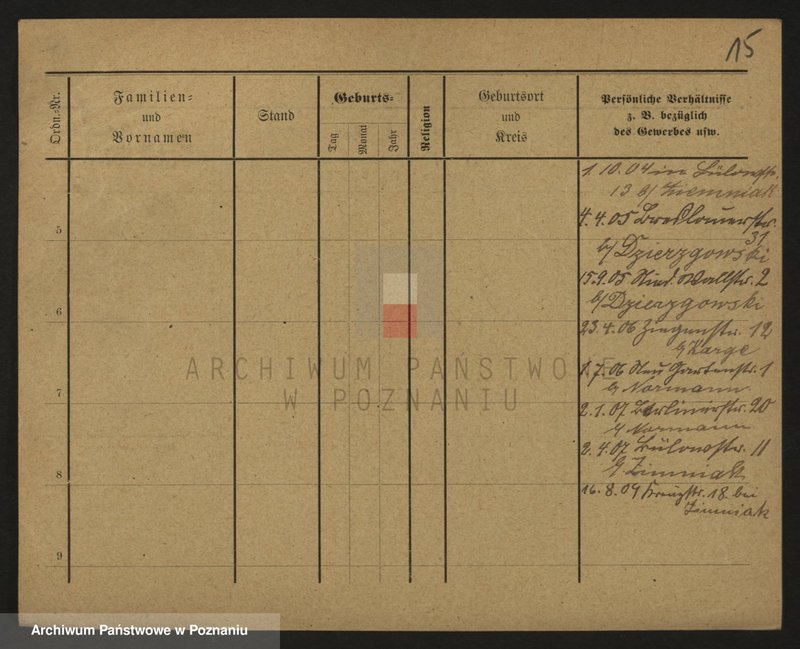 15
Ordn.-Nr.
Familien-
und
Vornamen
Stand
Geburts-
Tag
Monat
Jahr
Religion
Geburtsort
und
Kreis
Persönliche Verhältnisse
z. B. bezüglich
des Gewerbes usw.
1. 10. 04 in Bülowstr.
13 b/ Ziemniak
4. 4. 05 Breslauerstr.
31
b/ Dzierzgowski
15. 9. 05 Nied. Wallstr. 2
b/ Dzierzgowski
23. 4. 06 Ziegenstr. 12
b/ Karge
1. 7. 06 Neu Gartenstr. 1
b/ Normann
2. 1. 07 Berlinerstr. 20
b/ Normann
2. 4. 07 Bülowstr. 11
b/ Zimniak
16. 8. 09 Kreuzstr. 18 bei
Zimniak
5
6
7
8
9
ARCHIWUM PAŃSTWOWE
W POZNANIU
Archiwum Państwowe w Poznaniu